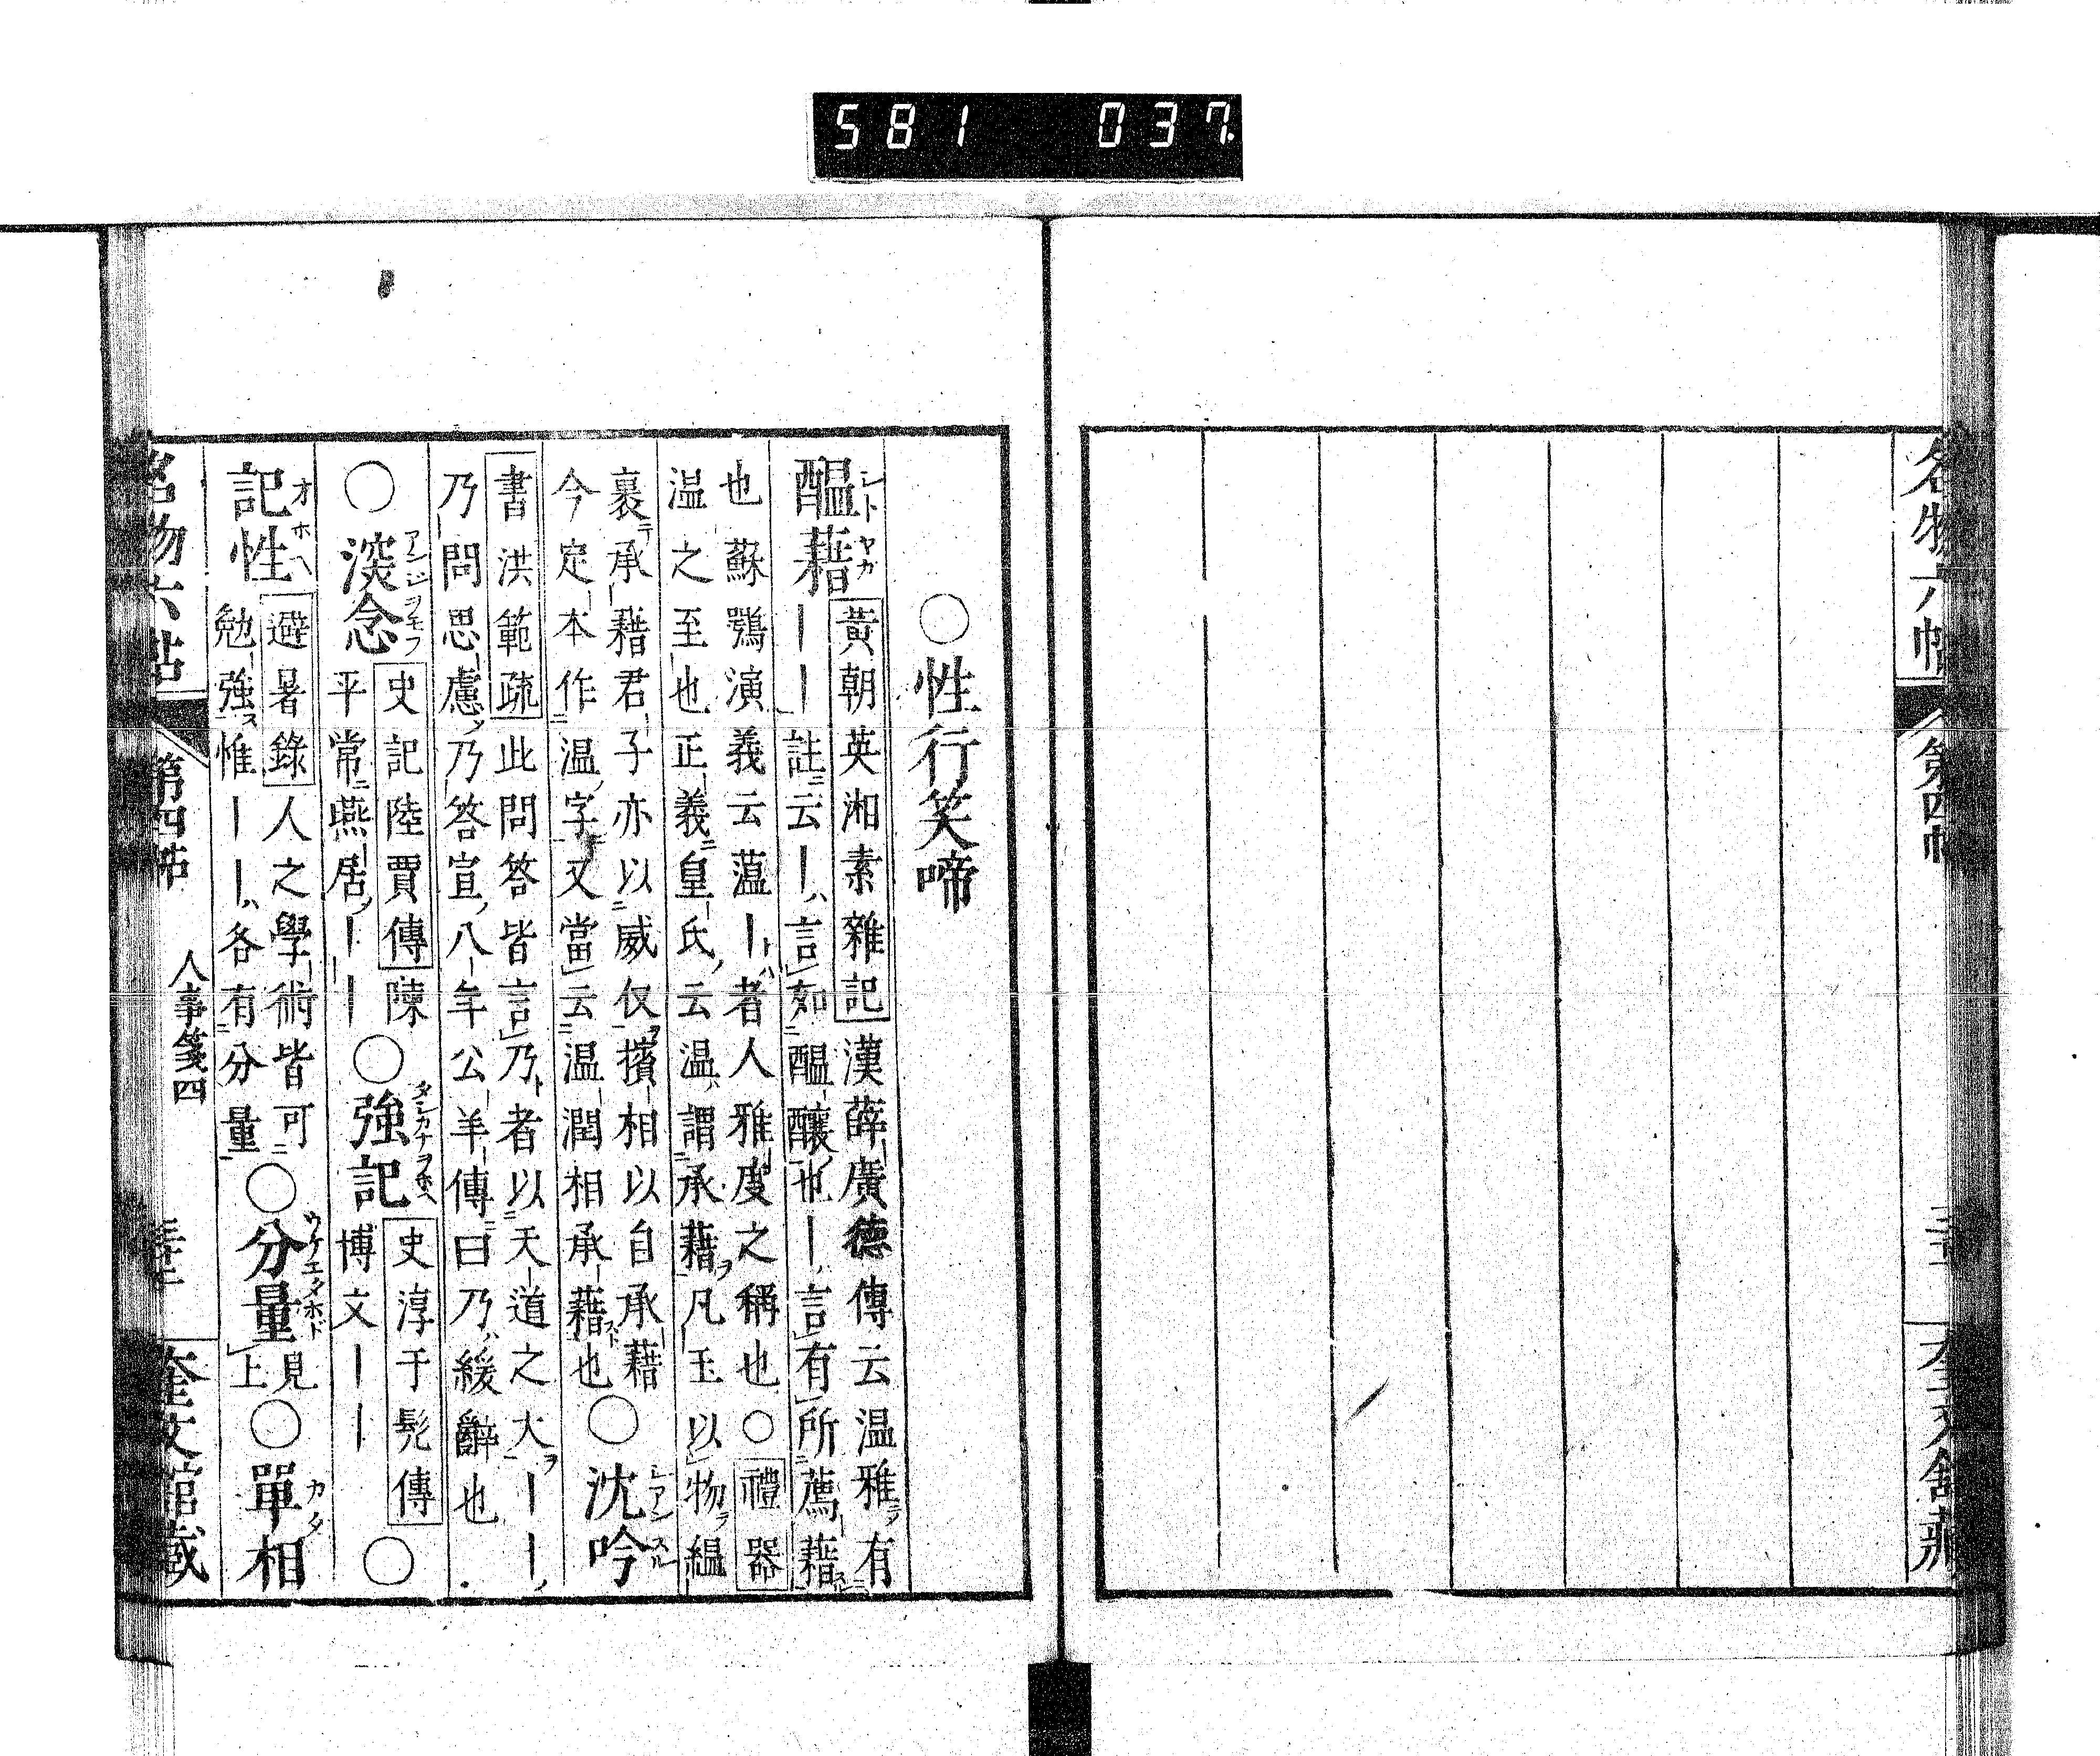 581 037
名物六帖
第四帖
奎文舘藏
○性行笑啼
醞藉
シトヤカ
黃朝英湘素雜記漢薛廣德傳云温雅有
――註云―言如醞釀也―言有所薦藉
也蘇鶚演義云蕰―者人雅度之稱也○禮器
温之至也正義皇氏云温謂承藉凡玉以物緼
裹承藉君子亦以威仪擯相以自承藉
今定本作温字又當云温潤相承藉也
○沈吟
シアンスル
書洪範疏此問答皆言乃者以天道之大――
乃問思慮乃答宣八年公羊傳曰乃緩辭也
○淡念
アンジヲモフ
史記陸賈傳陳
平常燕居――
○強記
タシカナヲホヘ
史淳于髡傳
博文――
○
記性
オホヘ
避暑錄人之學術皆可
勉強惟――各有分量
○分量
ウケエタホド
見上
○單相
カタ
名物六帖
第四帖
人事箋四
奎文舘藏